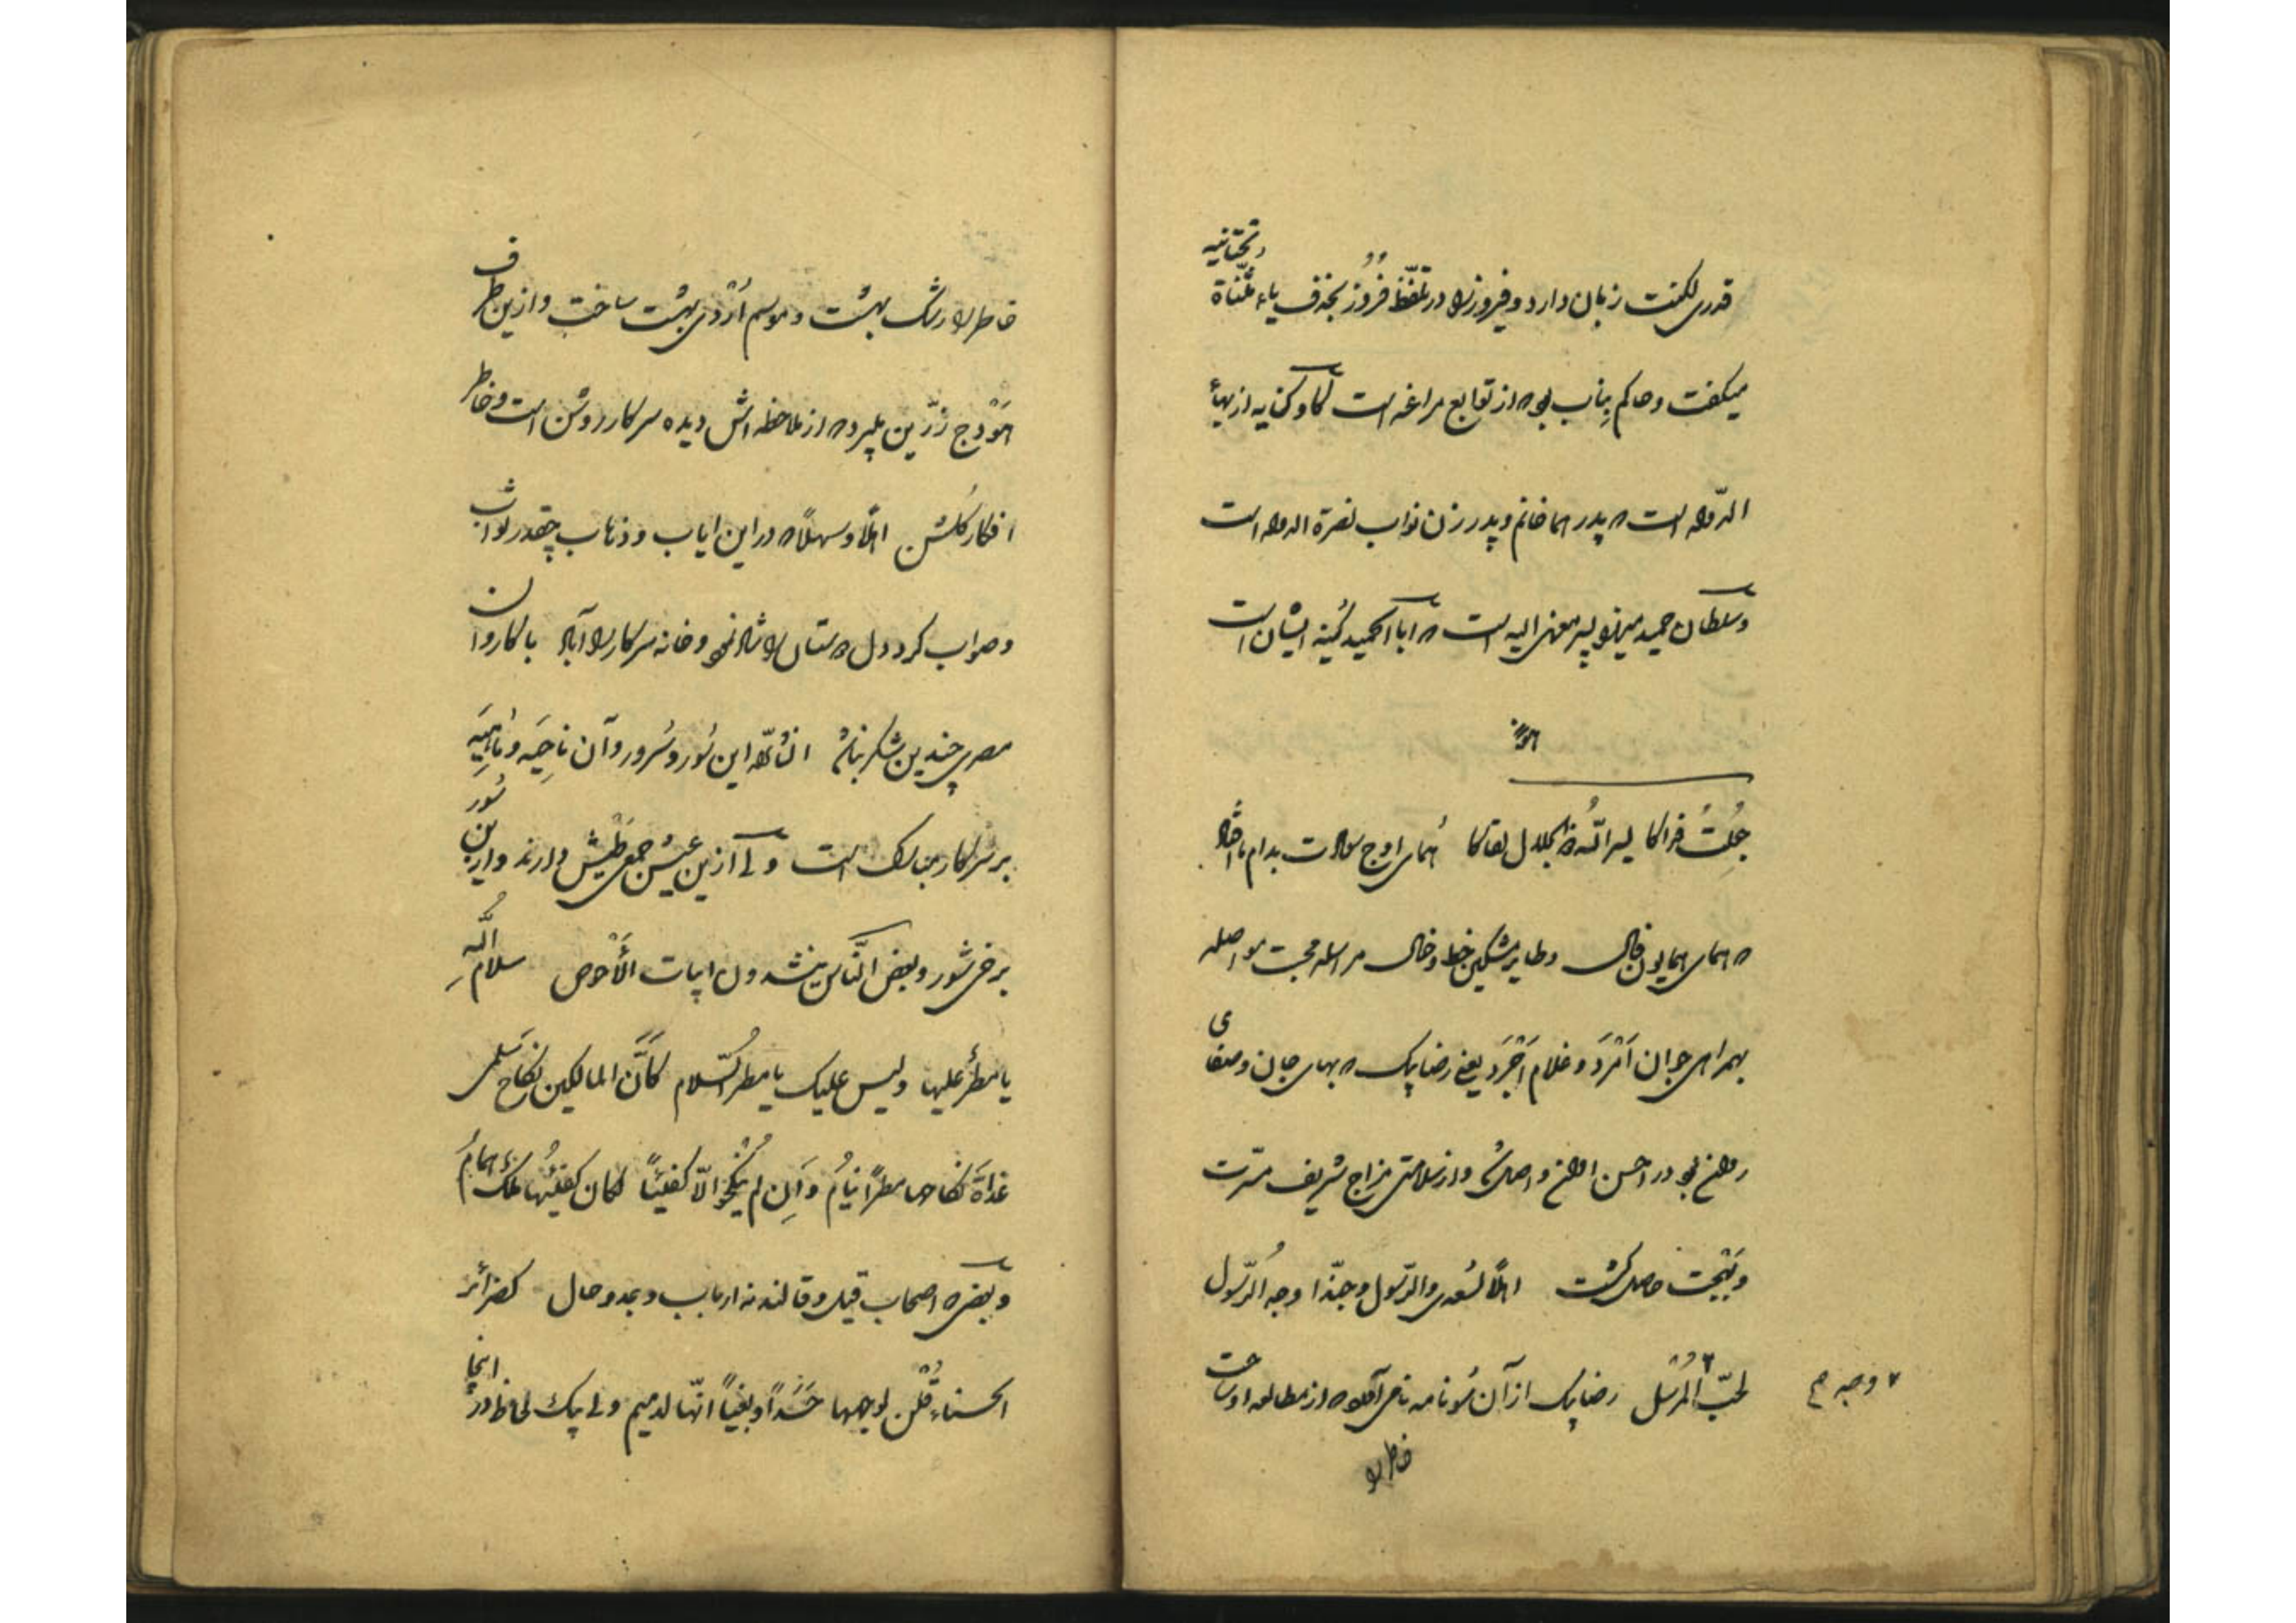 قدری لکنت زبان دارد و فیروز را در تلفّظ فُرُوز بحذف یاء مثنّاة تحتانیه
میگفت و حاکم بناب بود که از توابع مراغه است لکا و کنایه از بهاء
الدّوله است که پدر هما خانم و پدر زن نواب نصرة الدوله است
و سلطان حمید میرزا پسر معزی الیه است که ابا الحمید کنیه ایشان است
جُعِلتُ فداکا یسر اللّه بقاکا هُمای اوج سعادت بدام ما افتاد
که همای همایون فال و طایر مشکین خط و خال مراسله محبت مواصله
بهمراهی جوان اَمْرَد و غلام اَجْرَد یعنی رضا بیک که بهای جان و صفای
روان بود در احسن اوان و اصل شد و از سلامتی مزاج شریف مسرّت
و بَهْجَت حاصل گشت اهلاً لسُعدی والرّسول و حبّذا وجه الرّسول
لحبّ وجه المُرْسِل رضا بیک از آن سو نامه نامی آورد که از مطالعه او ساحت
خاطر را
خاطر را رشک بهشت و موسم اُرْدی بهشت ساخت و ازین طرف
هَوْدج زرّین ببرد که از ملاحظه اش دیده سرکار روشن است و خاطر
افکار گلشن اهلاً و سهلاً که در این ایاب و ذهاب چقدر ثواب
و صواب کرد دل دوستان را شاد نمود و خانه سرکار را آباد با کاروان
مصری چندین شکر نباشد انشاءاللّه این سُور و سُرور و آن ناحیَه و ناهیَه
بر سرکار مبارک است ولی ازین عیش جمعی طیش دارند و از این سُور
برخی شور و بعض النّاس ینشدون ابیات الأَحْوص سلامُ اللّهِ
یا مطرُ علیها و لیس علیک یا مطر السّلام کَأنَّ المالکین نکاح سَلمی
غداةَ نکاحها مطراً نیامُ وَ اِن لم یُنْکِحُوا الّا کفیّاً لکان کفیّها مَلِک همام
و بعضی که اصحاب قیل و قالند نه ارباب وجد و حال کضرائر
الحسناء قُلْن لوجهها حَسَداً و بغیاً انّها لدمیم ولی بیک لحاظ در اینجا